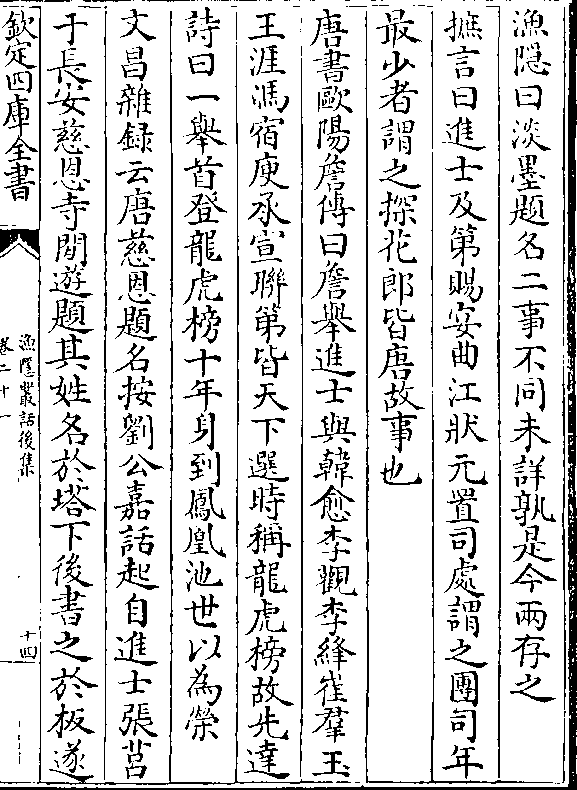 漁隠曰淡墨題名二事不同未詳孰是今兩存之
摭言曰進士及第賜宴曲江狀元置司處謂之團司年
最少者謂之探花郎皆唐故事也
唐書歐陽詹傳曰詹舉進士與韓愈李觀李絳崔羣王
王涯馮宿庾承宣聯第皆天下選時稱龍虎榜故先達
詩曰一舉首登龍虎榜十年身到鳳凰池世以為榮
文昌雜録云唐慈恩題名按劉公嘉話起自進士張莒
于長安慈恩寺閒遊題其姓名於塔下後書之於板遂
欽定四庫全書
漁隱叢話後集
卷二十一
十四